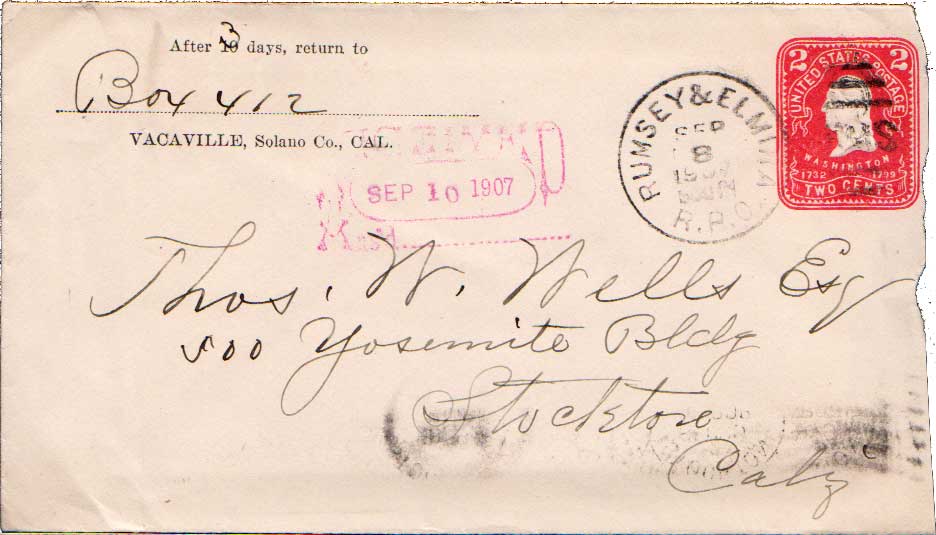 After 3 days, return to
Box 412
VACAVILLE, Solano Co., CAL.
RECEIVED
SEP 10 1907
Ans'd
RUMSEY & ELMIRA
SEP
8
1907
R.P.O.
2 2
UNITED STATES POSTAGE
WASHINGTON
1732 1799
TWO CENTS
Thos. W. Wells Esq
500 Yosemite Bldg
Stockton
Calif